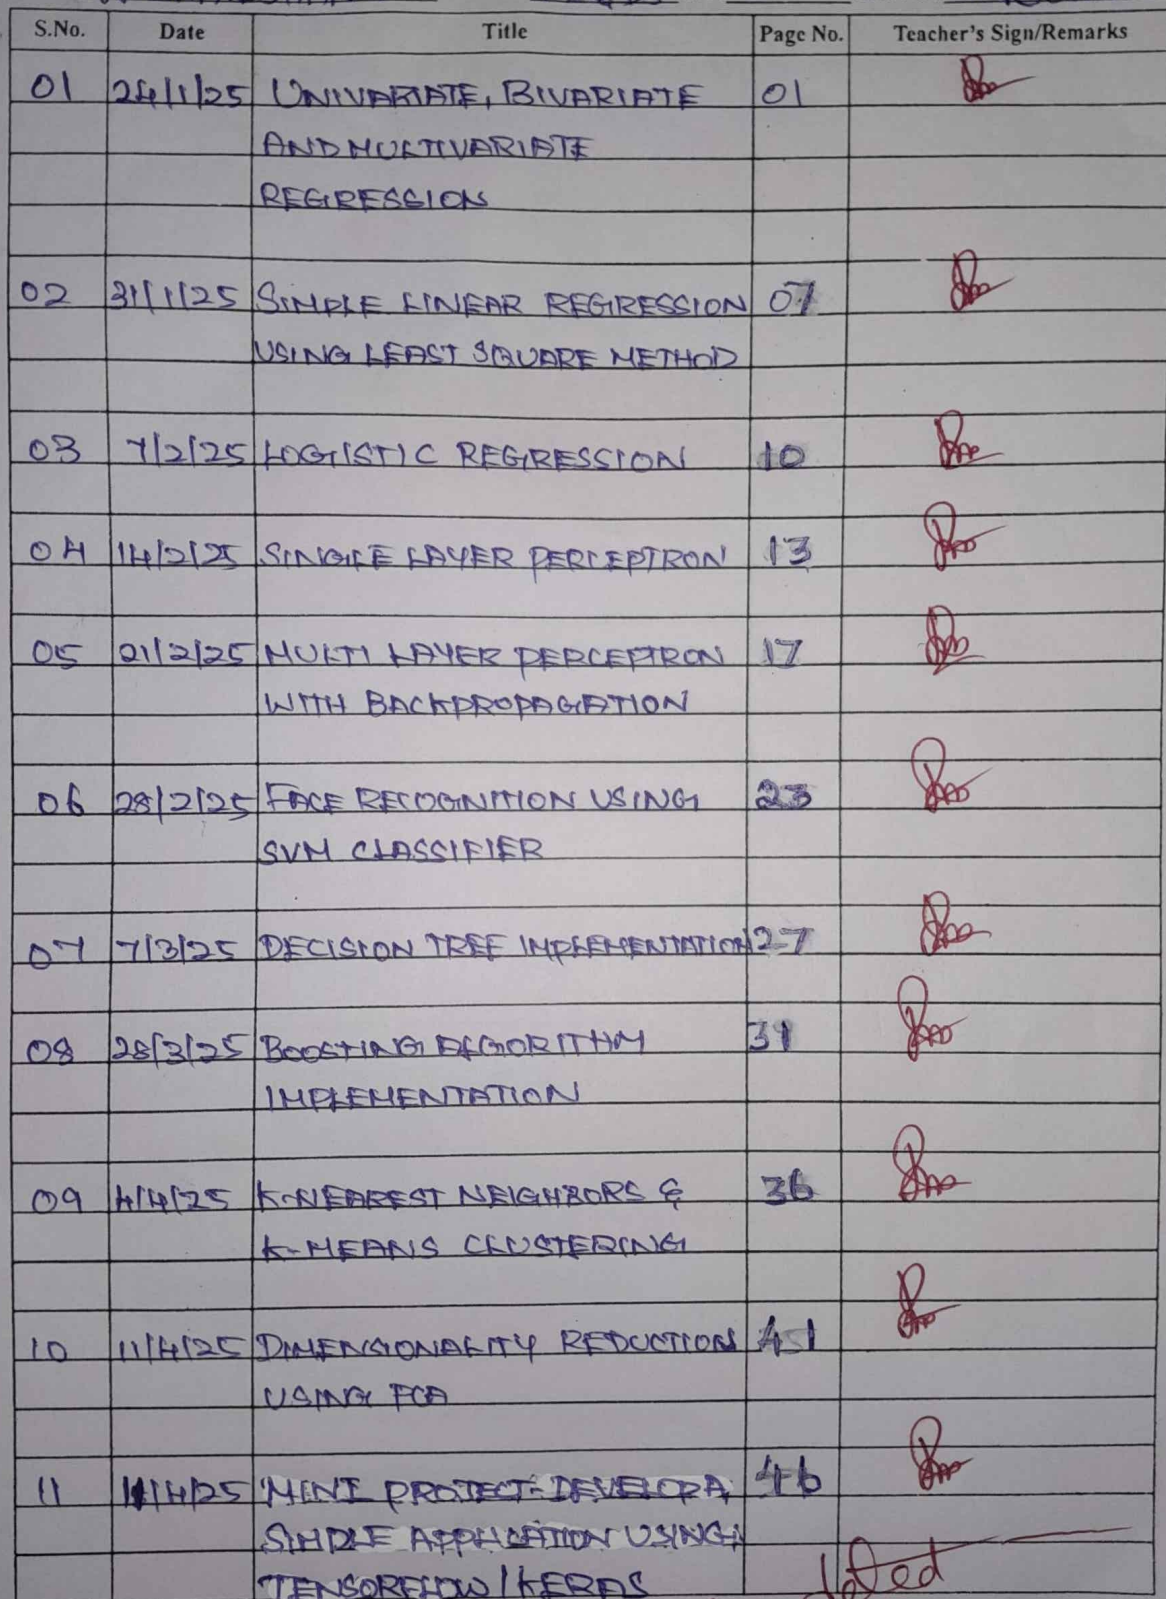 S.No. Date Title Page No. Teacher's Sign/Remarks
01 24/1/25 UNIVARIATE, BIVARIATE 01
AND MULTIVARIATE
REGRESSION
02 31/1/25 SIMPLE LINEAR REGRESSION 07
USING LEAST SQUARE METHOD
03 7/2/25 LOGISTIC REGRESSION 10
04 14/2/25 SINGLE LAYER PERCEPTRON 13
05 21/2/25 MULTI LAYER PERCEPTRON 17
WITH BACKPROPAGATION
06 28/2/25 FACE RECOGNITION USING 23
SVM CLASSIFIER
07 7/3/25 DECISION TREE IMPLEMENTATION 27
08 28/3/25 BOOSTING ALGORITHM 31
IMPLEMENTATION
09 4/4/25 K-NEAREST NEIGHBORS &
36
K-MEANS CLUSTERING
10 11/4/25 DIMENSIONALITY REDUCTION 41
USING PCA
11 11/4/25 MINI PROJECT-DEVELOP A 46
SIMPLE APPLICATION USING
TENSORFLOW/KERAS